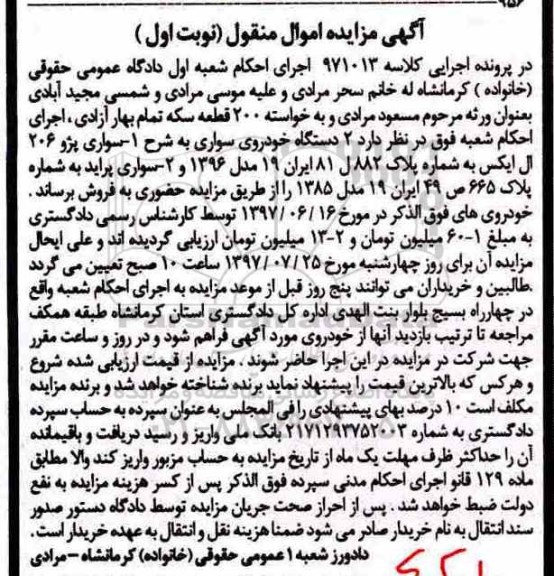 ۹۵۶
آگهی مزایده اموال منقول (نوبت اول)
در پرونده اجرایی کلاسه ۹۷۱۰۱۳ اجرای احکام شعبه اول دادگاه عمومی حقوقی
(خانواده) کرمانشاه له خانم سحر مرادی و علیه موسی مرادی و شمسی مجید آبادی
بعنوان ورثه مرحوم مسعود مرادی و به خواسته ۲۰۰ قطعه سکه تمام بهار آزادی، اجرای
احکام شعبه فوق در نظر دارد ۲ دستگاه خودروی سواری به شرح ۱-سواری پژو ۲۰۶
ال ایکس به شماره پلاک ۸۸۲ ل ۸۱ ایران ۱۹ مدل ۱۳۹۶ و ۲-سواری پراید به شماره
پلاک ۶۶۵ ص ۴۹ ایران ۱۹ مدل ۱۳۸۵ را از طریق مزایده حضوری به فروش برساند.
خودروی های فوق الذکر در مورخ ۱۶/ ۰۶/ ۱۳۹۷ توسط کارشناس رسمی دادگستری
به مبلغ ۱-۶۰ میلیون تومان و ۲-۱۳ میلیون تومان ارزیابی گردیده اند و علی ایحال
مزایده آن برای روز چهارشنبه مورخ ۲۵/ ۰۷/ ۱۳۹۷ ساعت ۱۰ صبح تعیین می گردد
.طالبین و خریداران می توانند پنج روز قبل از موعد مزایده به اجرای احکام شعبه واقع
در چهارراه بسیج بلوار بنت الهدی اداره کل دادگستری استان کرمانشاه طبقه همکف
مراجعه تا ترتیب بازدید آنها از خودروی مورد آگهی فراهم شود و در روز و ساعت مقرر
جهت شرکت در مزایده در این اجرا حاضر شوند. مزایده از قیمت ارزیابی شده شروع
و هرکس که بالاترین قیمت را پیشنهاد نماید برنده شناخته خواهد شد و برنده مزایده
مکلف است ۱۰ درصد بهای پیشنهادی را فی المجلس به عنوان سپرده به حساب سپرده
دادگستری به شماره ۲۱۷۱۲۹۳۷۵۲۰۰۳ بانک ملی واریز و رسید دریافت و باقیمانده
آن را حداکثر ظرف مهلت یک ماه از تاریخ مزایده به حساب مزبور واریز کند والا مطابق
ماده ۱۲۹ قانو اجرای احکام مدنی سپرده فوق الذکر پس از کسر هزینه مزایده به نفع
دولت ضبط خواهد شد. پس از احراز صحت جریان مزایده توسط دادگاه دستور صدور
سند انتقال به نام خریدار صادر می شود ضمنا هزینه نقل و انتقال به عهده خریدار است.
دادورز شعبه ۱ عمومی حقوقی (خانواده) کرمانشاه – مرادی